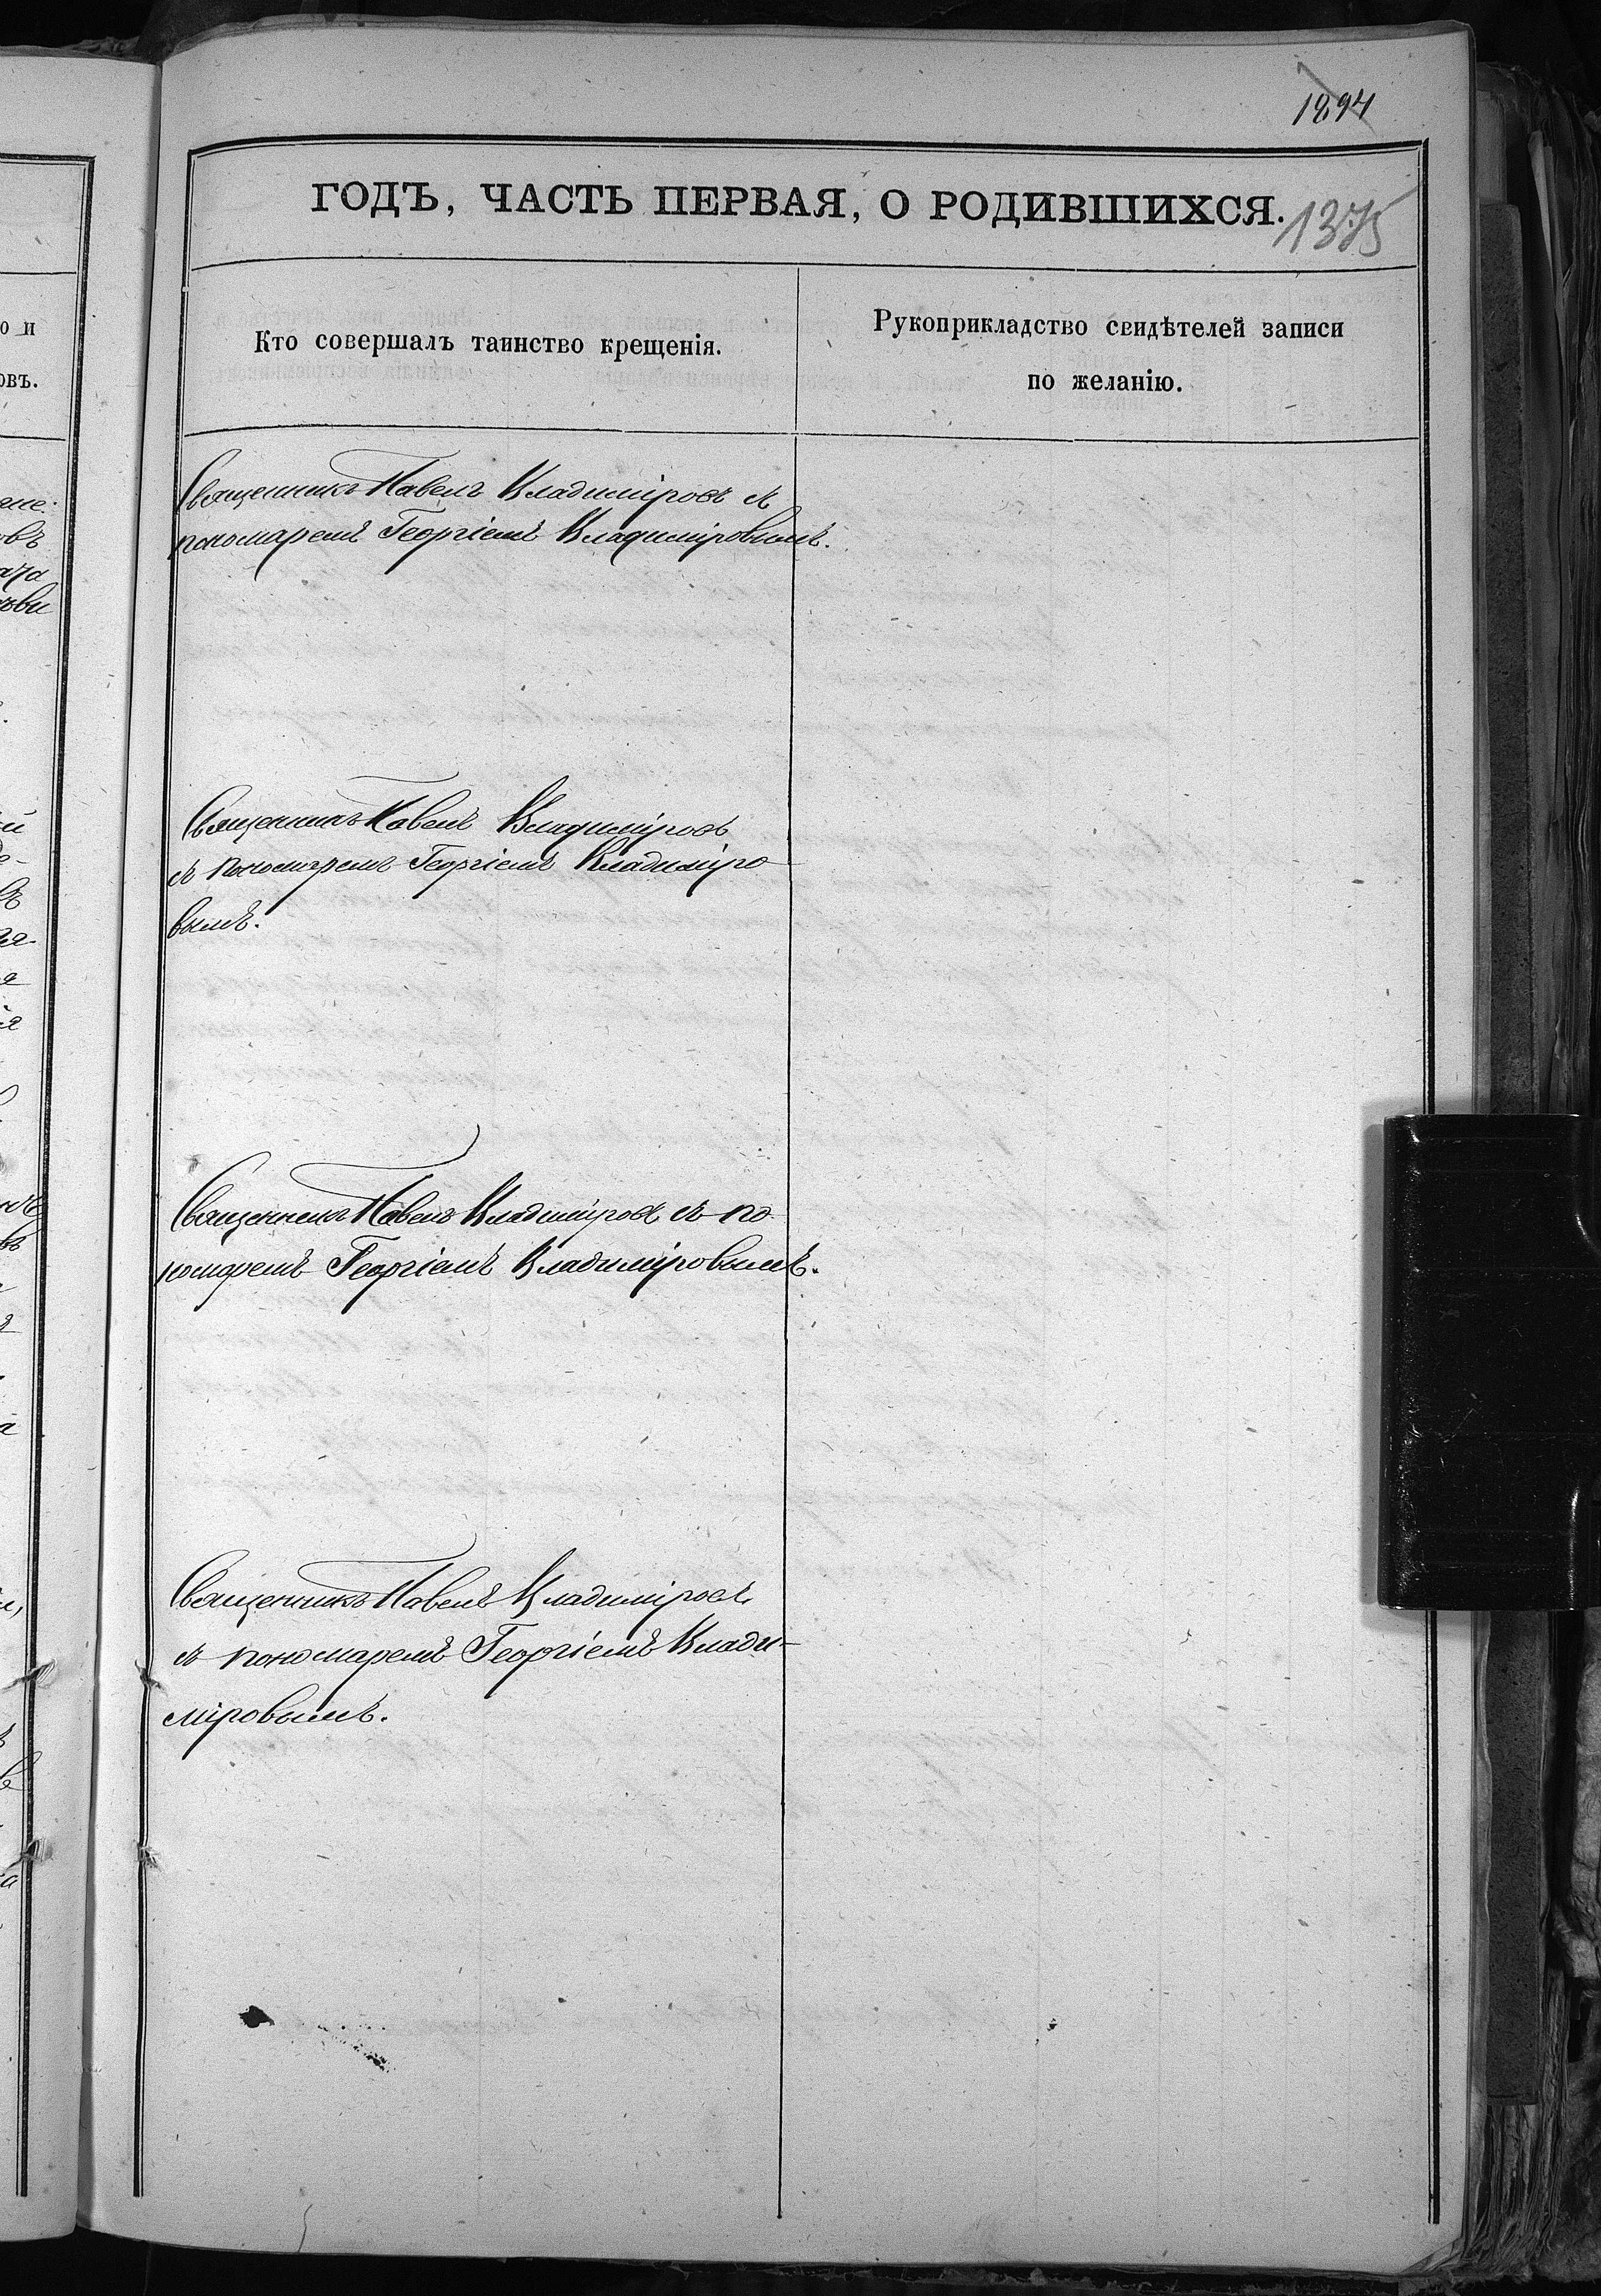 1294
ГОДЪ, ЧАСТЬ ПЕРВАЯ, О РОДИВШИХСЯ.
1375
Кто совершалъ таинство крещенія.
Рукоприкладство свидѣтелей записи
по желанію.
Священникъ Павелъ Владиміровъ съ
пономаремъ Георгіемъ Владиміровымъ.
Священникъ Павелъ Владиміровъ
съ пономаремъ Георгіемъ Владиміро
вымъ.
Священникъ Павелъ Владиміровъ съ по
номаремъ Георгіемъ Владиміровымъ.
Священникъ Павелъ Владиміровъ
съ пономаремъ Георгіемъ Влади-
міровымъ.